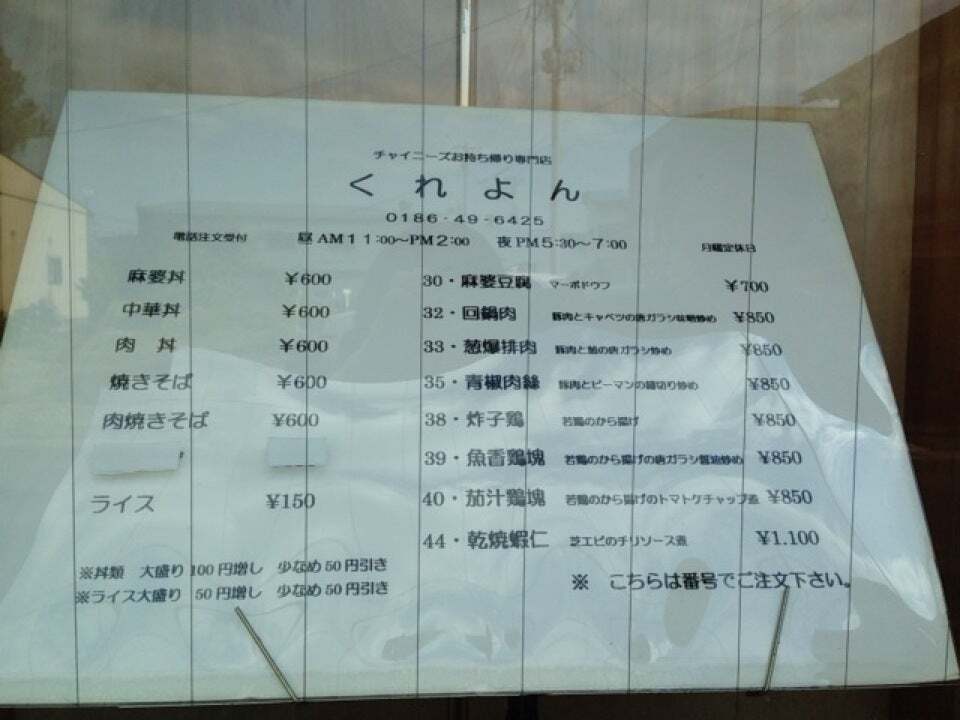 チャイニーズお持ち帰り専門店
くれよん
0186-49-6425
電話注文受付 昼 AM11:00～PM2:00 夜 PM5:30～7:00 月曜定休日
麻婆丼 ¥600
中華丼 ¥600
肉 丼 ¥600
焼きそば ¥600
肉焼きそば ¥600
ライス ¥150
※丼類 大盛り100円増し 少なめ50円引き
※ライス大盛り 50円増し 少なめ50円引き
30・麻婆豆腐 マーボドウフ ¥700
32・回鍋肉 豚肉とキャベツの唐ガラシ味噌炒め ¥850
33・葱爆排肉 豚肉と葱の唐ガラシ炒め ¥850
35・青椒肉絲 豚肉とピーマンの細切り炒め ¥850
38・炸子鶏 若鶏のから揚げ ¥850
39・魚香鶏塊 若鶏のから揚げの唐ガラシ醤油炒め ¥850
40・茄汁鶏塊 若鶏のから揚げのトマトケチャップ煮 ¥850
44・乾焼蝦仁 芝エビのチリソース煮 ¥1.100
※ こちらは番号でご注文下さい。